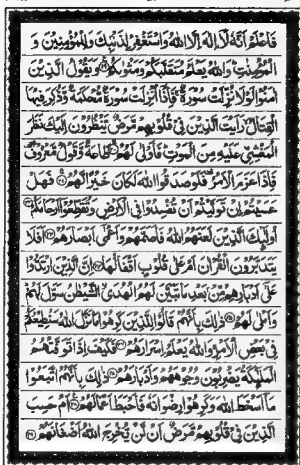 فَاعْلَمْ أَنَّهُ لَا إِلَهَ إِلَّا اللهُ وَاسْتَغْفِرْ لِذَنْبِكَ وَلِلْمُؤْمِنِينَ وَ
الْمُؤْمِنَاتِ وَاللهُ يَعْلَمُ مُتَقَلَّبَكُمْ وَمَثْوَاكُمْ وَيَقُولُ الَّذِينَ
آمَنُوا لَوْلَا نُزِّلَتْ سُورَةٌ فَإِذَا أُنْزِلَتْ سُورَةٌ مُحْكَمَةٌ وَذُكِرَ فِيهَا
الْقِتَالُ رَأَيْتَ الَّذِينَ فِي قُلُوبِهِمْ مَرَضٌ يَنْظُرُونَ إِلَيْكَ نَظَرَ
الْمَغْشِيِّ عَلَيْهِ مِنَ الْمَوْتِ فَأَوْلَى لَهُمْ طَاعَةٌ وَقَوْلٌ مَعْرُوفٌ
فَإِذَا عَزَمَ الْأَمْرُ فَلَوْ صَدَقُوا اللهَ لَكَانَ خَيْرًا لَهُمْ ﴿٢١﴾ فَهَلْ
عَسَيْتُمْ إِنْ تَوَلَّيْتُمْ أَنْ تُفْسِدُوا فِي الْأَرْضِ وَتُقَطِّعُوا أَرْحَامَكُمْ ﴿٢٢﴾
أُولَئِكَ الَّذِينَ لَعَنَهُمُ اللهُ فَأَصَمَّهُمْ وَأَعْمَى أَبْصَارَهُمْ ﴿٢٣﴾ أَفَلَا
يَتَدَبَّرُونَ الْقُرْآنَ أَمْ عَلَى قُلُوبٍ أَقْفَالُهَا ﴿٢٤﴾ إِنَّ الَّذِينَ ارْتَدُّوا
عَلَى أَدْبَارِهِمْ مِنْ بَعْدِ مَا تَبَيَّنَ لَهُمُ الْهُدَى الشَّيْطَانُ سَوَّلَ لَهُمْ
وَأَمْلَى لَهُمْ ﴿٢٥﴾ ذَلِكَ بِأَنَّهُمْ قَالُوا لِلَّذِينَ كَرِهُوا مَا نَزَّلَ اللهُ سَنُطِيعُكُمْ
فِي بَعْضِ الْأَمْرِ وَاللهُ يَعْلَمُ إِسْرَارَهُمْ ﴿٢٦﴾ فَكَيْفَ إِذَا تَوَفَّتْهُمُ
الْمَلَائِكَةُ يَضْرِبُونَ وُجُوهَهُمْ وَأَدْبَارَهُمْ ﴿٢٧﴾ ذَلِكَ بِأَنَّهُمُ اتَّبَعُوا
مَا أَسْخَطَ اللهَ وَكَرِهُوا رِضْوَانَهُ فَأَحْبَطَ أَعْمَالَهُمْ ﴿٢٨﴾ أَمْ حَسِبَ
الَّذِينَ فِي قُلُوبِهِمْ مَرَضٌ أَنْ لَنْ يُخْرِجَ اللهُ أَضْغَانَهُمْ ﴿٢٩﴾